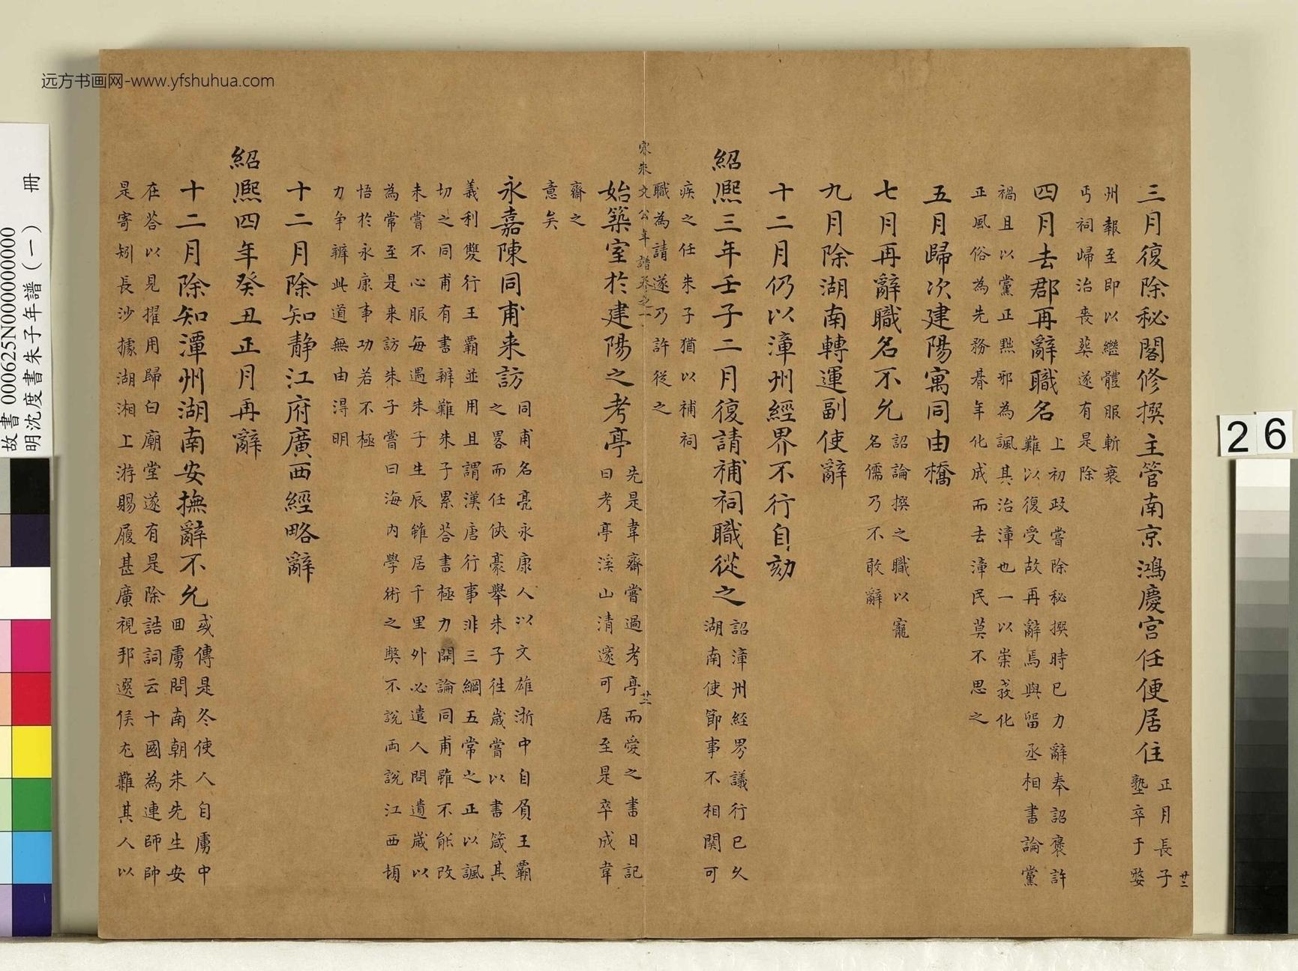 三月復除秘閣修撰主管南京鴻慶宮任便居住
正月長子
塾卒于婺
廿三
州報至即以繼體服斬衰
丐祠歸治喪葬遂有是除
四月去郡再辭職名
上初政嘗除秘撰時已力辭奉詔褒許
難以復受故再辭焉與留丞相書論黨
禍且以黨正黜邪為諷其治漳也一以崇義化
正風俗為先務朞年化成而去漳民莫不思之
五月歸次建陽寓同由橋
七月再辭職名不允
詔論撰之職以寵
名儒乃不敢辭
九月除湖南轉運副使辭
十二月仍以漳州經界不行自劾
紹熙三年壬子二月復請補祠職從之
詔漳州經界議行已久
湖南使節事不相関可
疾之任朱子猶以補祠
職為請遂乃許從之
宋朱文公年譜卷之一
廿二
始築室於建陽之考亭
先是韋齋嘗過考亭而愛之書日記
曰考亭溪山清邃可居至是卒成韋
齋之
意矣
永嘉陳同甫来訪
同甫名亮永康人以文雄浙中自負王霸
之畧而任俠豪舉朱子往歲嘗以書箴其
義利雙行王霸並用且謂漢唐行事非三綱五常之正以諷
切之同甫有書辨難朱子累荅書極力開論同甫雖不能改
未嘗不心服每遇朱子生辰雖居千里外必遣人問遺歲以
為常至是来訪朱子嘗曰海內學術之弊不說两說江西頓
悟於永康事功若不極
力争辯此道無由淂明
十二月除知静江府廣西經略辭
紹熙四年癸丑正月再辭
十二月除知潭州湖南安撫辭不允
或傳是冬使人自虜中
囬虜問南朝朱先生安
在荅以見擢用歸白廟堂遂有是除誥詞云十國為連師帥
是寄矧長沙據湖湘上游賜履甚廣視邦選侯尤難其人以
远方书画网-www.yfshuhua.com
故書 000625N000000000 冊
明沈度書朱子年譜(一)
26